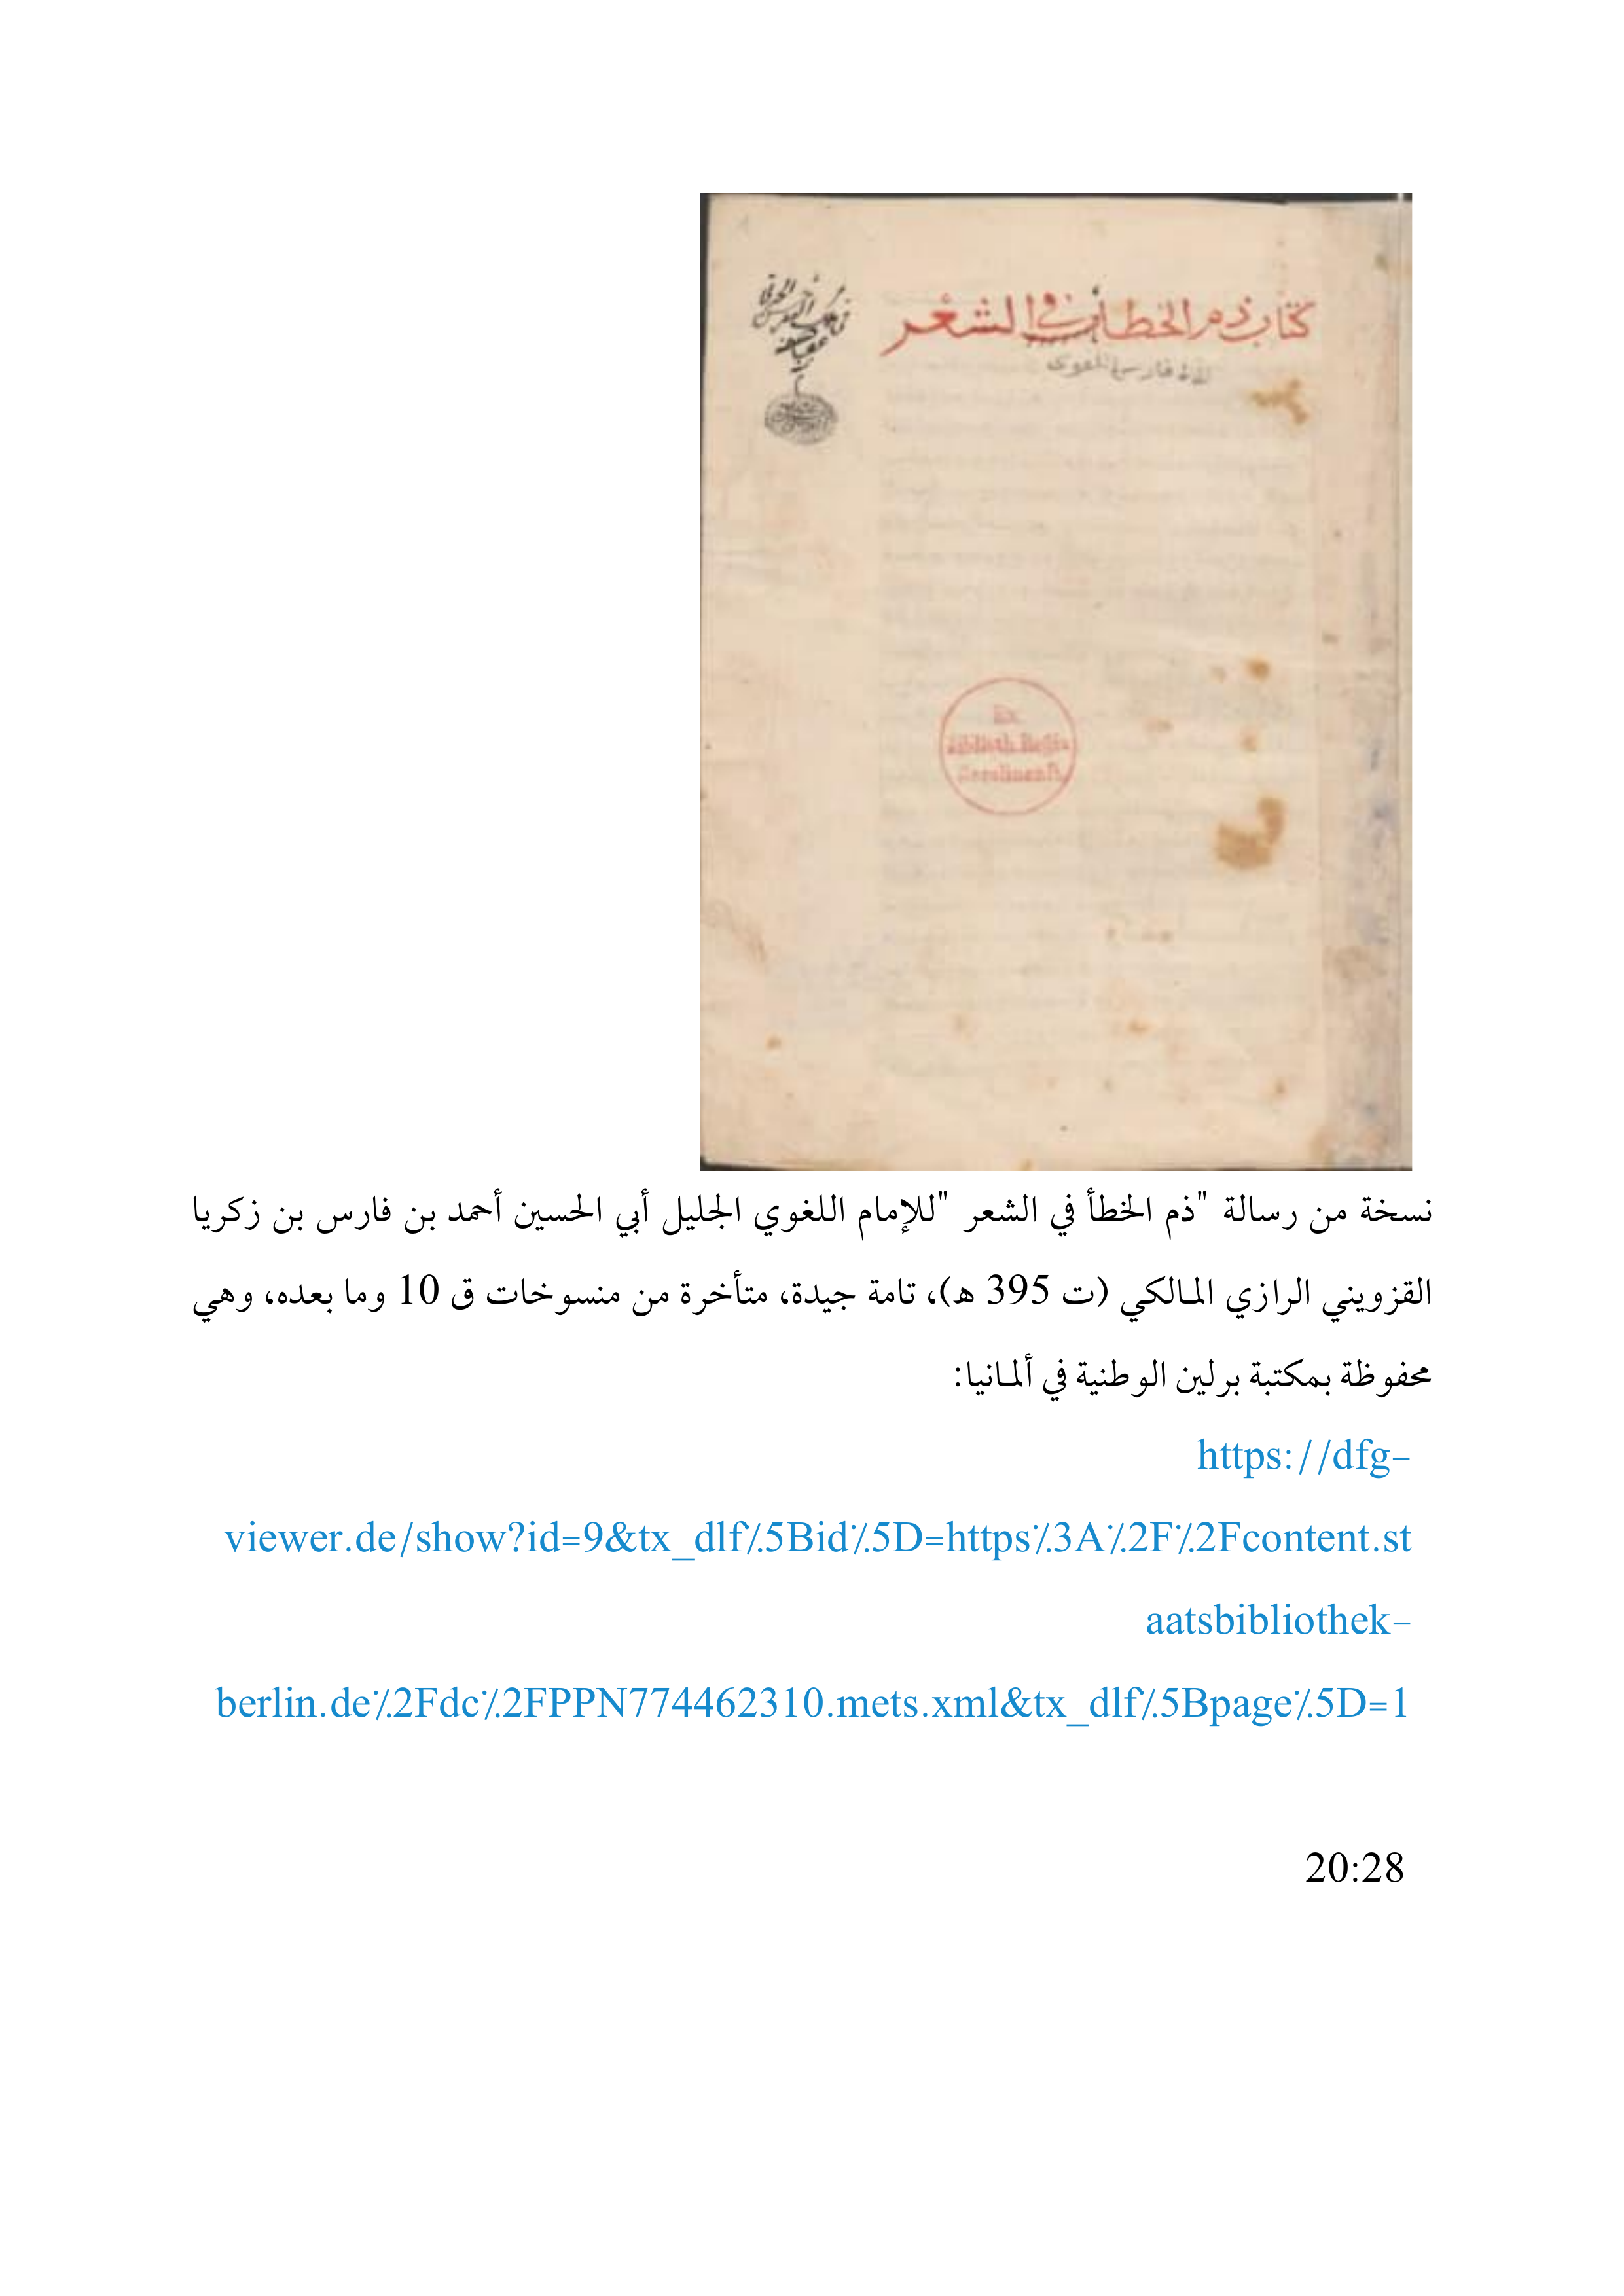 كتاب ذم الخطأ في الشعر
لابن فارس اللغوى
Ex
Biblioth. Regia
Berolinensi.
نسخة من رسالة "ذم الخطأ في الشعر "للإمام اللغوي الجليل أبي الحسين أحمد بن فارس بن زكريا
القزويني الرازي المالكي (ت 395 هـ)، تامة جيدة، متأخرة من منسوخات ق 10 وما بعده، وهي
محفوظة بمكتبة برلين الوطنية في ألمانيا:
https://dfg-
viewer.de/show?id=9&tx_dlf%5Bid%5D=https%3A%2F%2Fcontent.st
aatsbibliothek-
berlin.de%2Fdc%2FPPN774462310.mets.xml&tx_dlf%5Bpage%5D=1
20:28